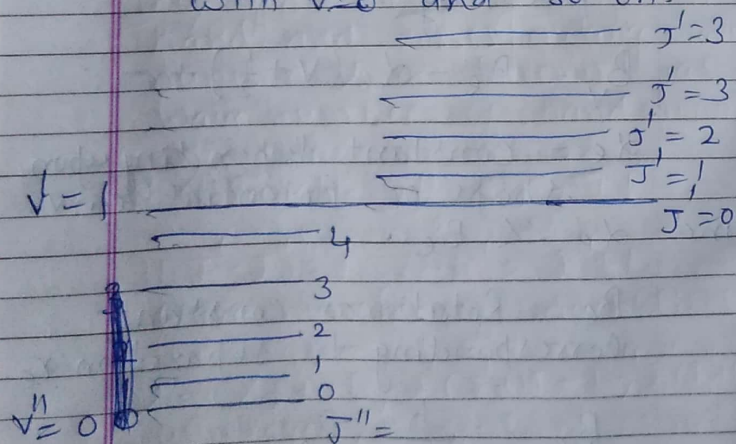 J'=3
J'=3
J'=2
J'=1
V'=1
J'=0
4
3
2
1
0
V''=0 J''=